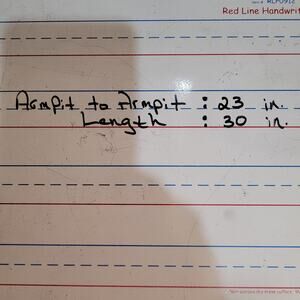 Red Line Handwrit
Armpit to Armpit : 23 in.
Length : 30 in.